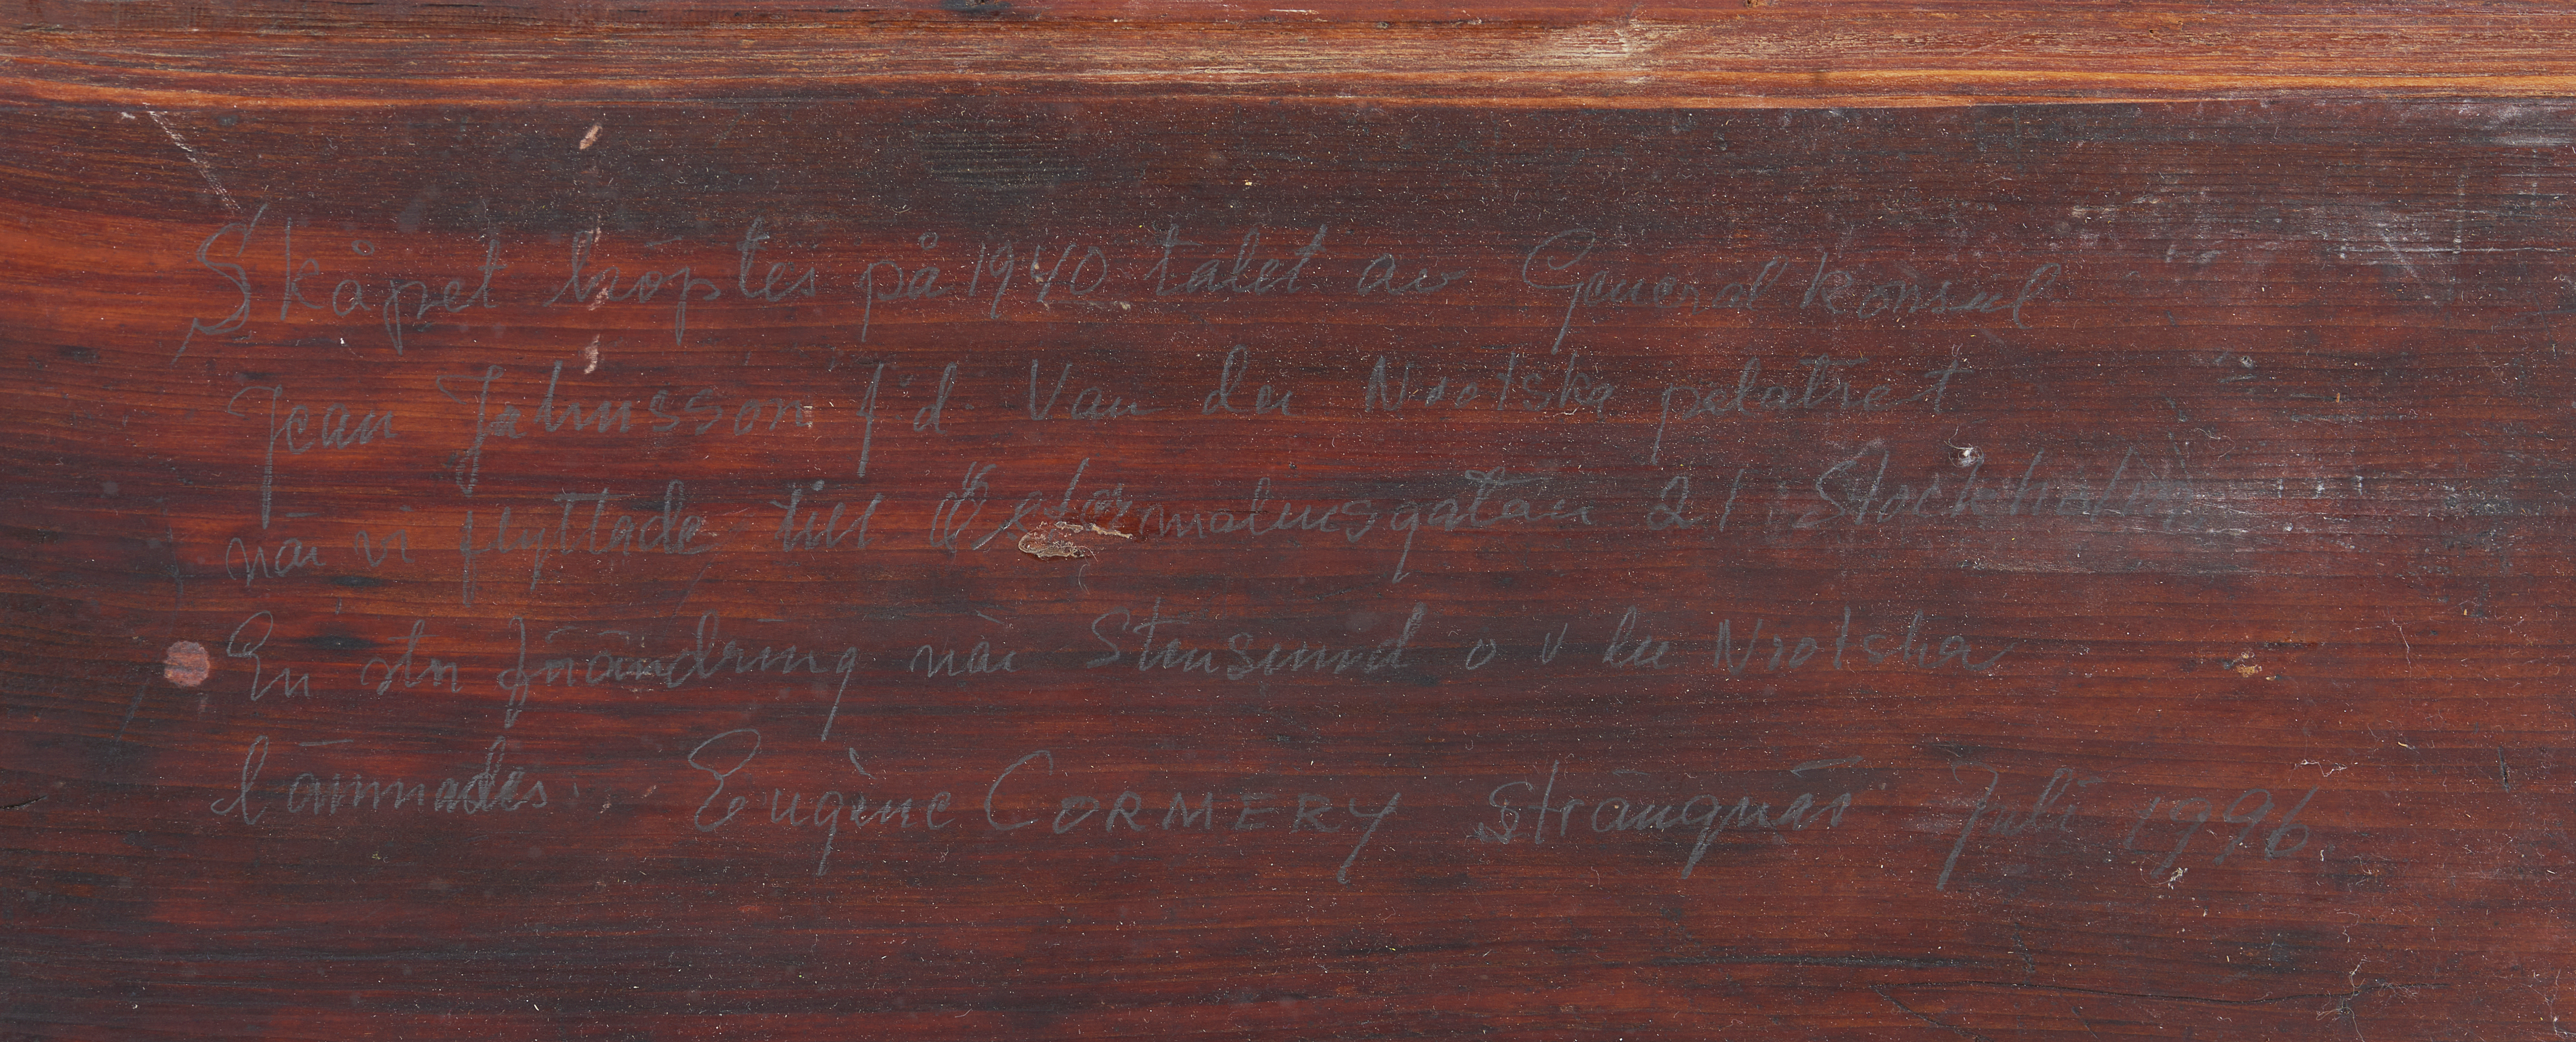 Skåpet köptes på 1940 talet av General Konsul
Jean Jahnsson f.d. Van der Nootska palatset
när vi flyttade till Östermalmsgatan 21 Stockholm
En stor förändring när Stensund o v der Nootska
lämnades. Eugène CORMERY Strängnäs Juli 1996.